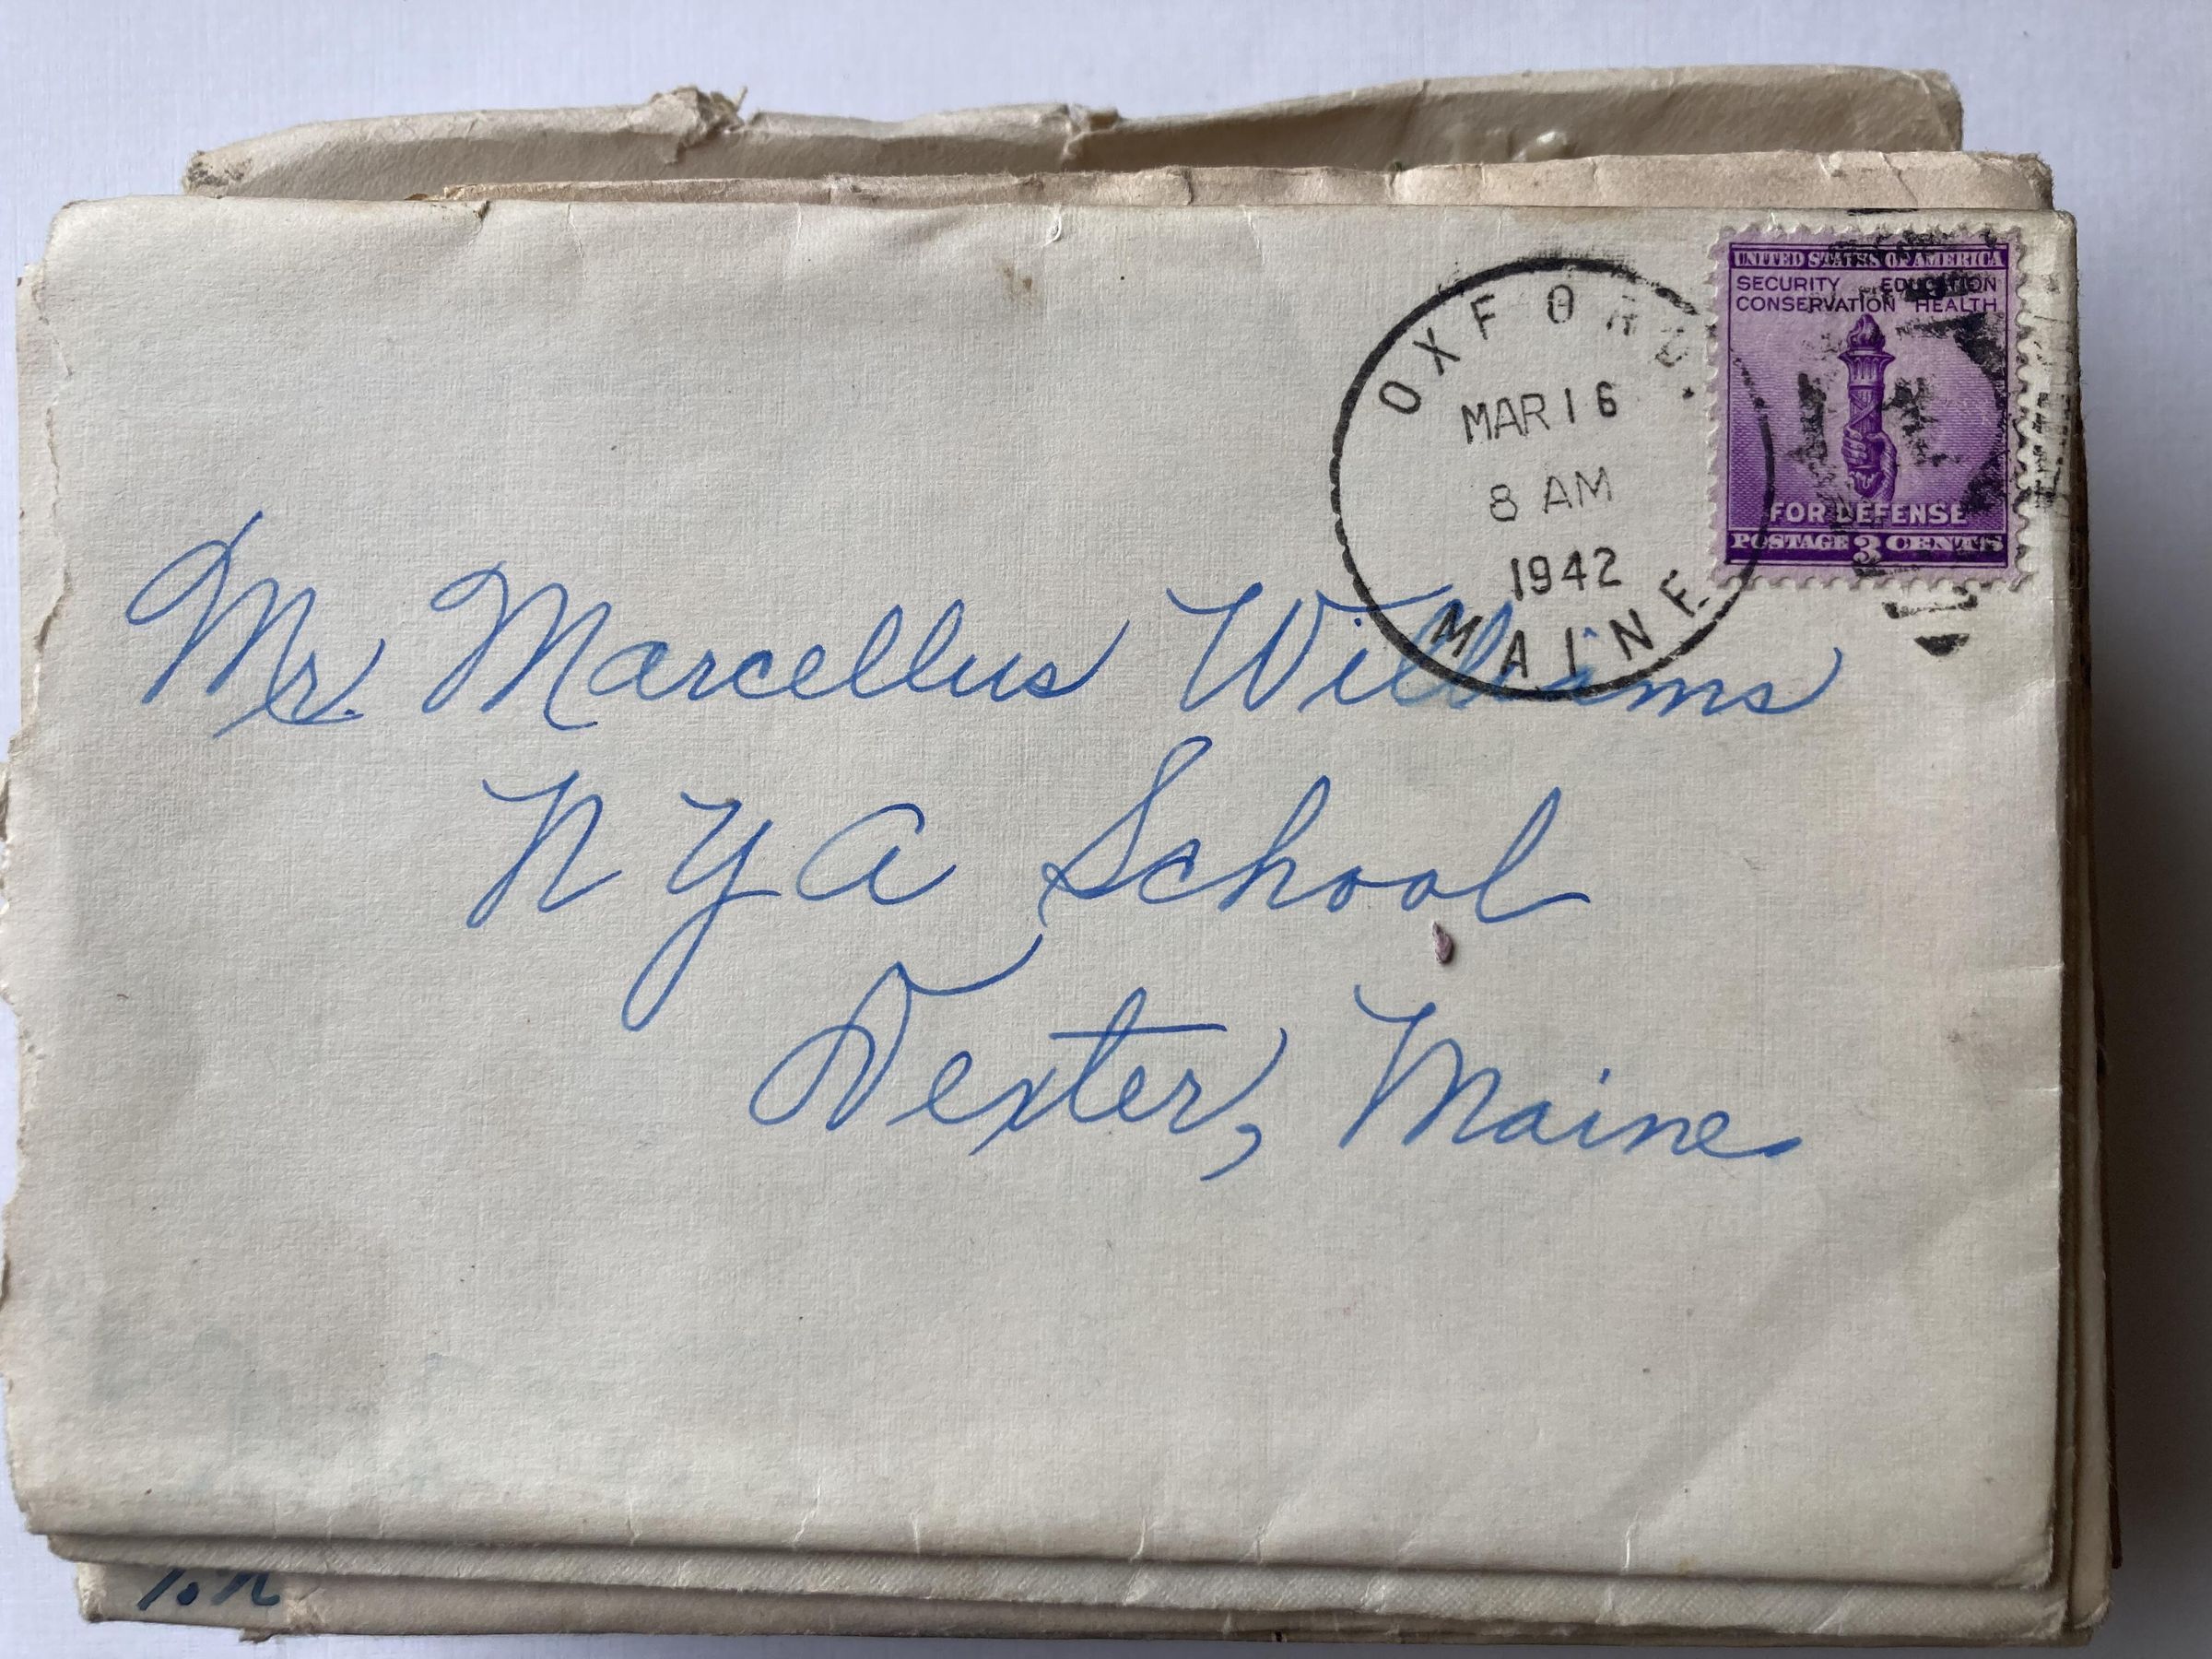 UNITED STATES OF AMERICA
SECURITY EDUCATION
CONSERVATION HEALTH
FOR DEFENSE
POSTAGE 3 CENTS
OXFORD.
MAR 16
8 AM
1942
MAINE
Mr. Marcellus Williams
N Y A School
Dexter, Maine